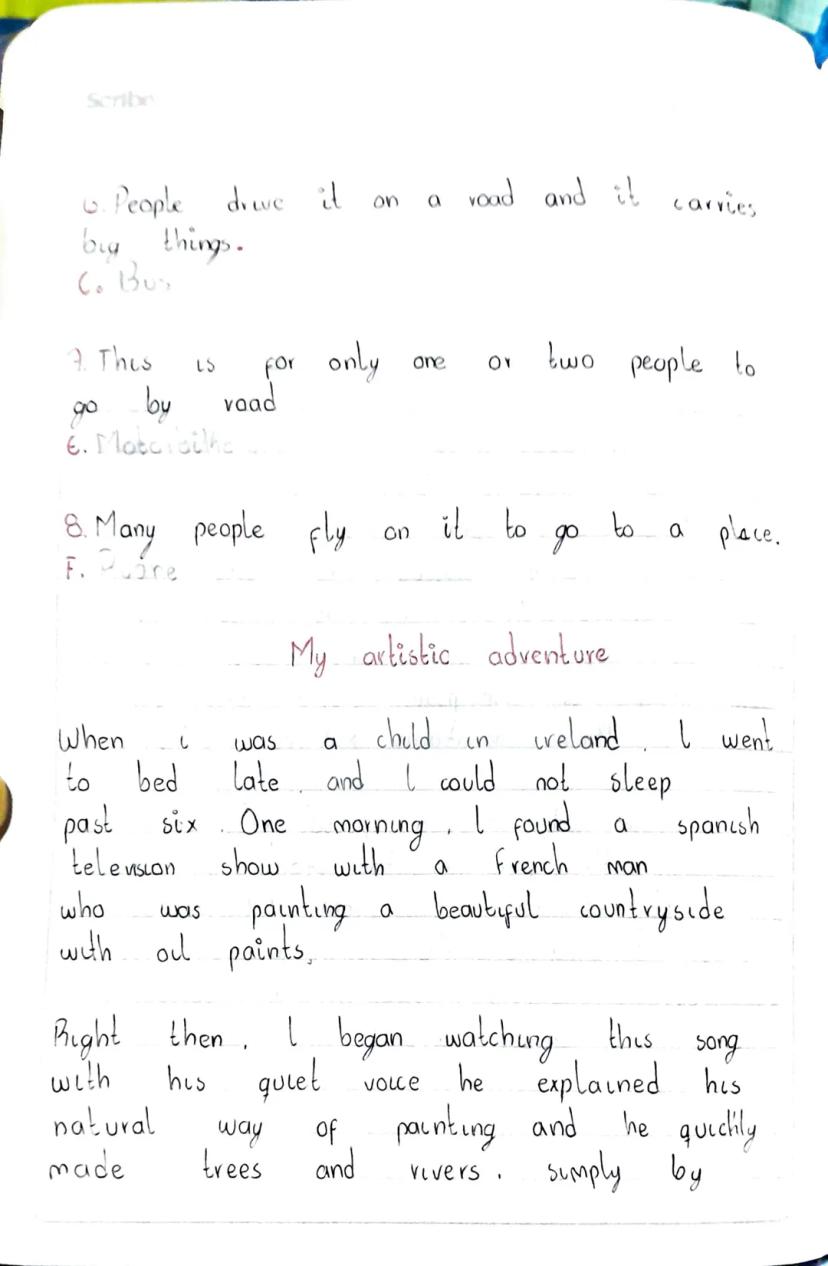 Scribe
6. People drive it on a road and it carries
big things.
C. Bus
7. This is for only one or two people to
go by road
E.
8. Many people fly on it to go to a place.
F.
My artistic adventure
When i was a child in ireland, I went
to bed late, and I could not sleep
past six. One morning, I found a spanish
television show with a french man
who was painting a beautiful countryside
with oil paints,
Right then, I began watching this song
with his quiet voice he explained his
natural way of painting and he quickly
made trees and rivers, simply by